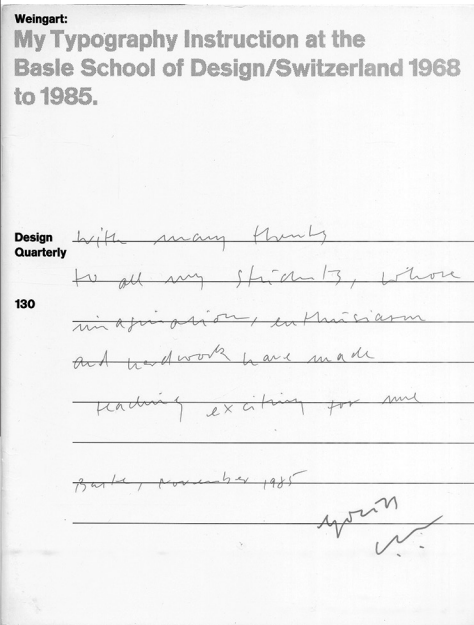 Weingart:
My Typography Instruction at the
Basle School of Design/Switzerland 1968
to 1985.
Design
Quarterly
130
with many thanks
to all my students, whose
imagination, enthusiasm
and hardwork have made
teaching exciting for me
Basle, november 1985
yours
W.